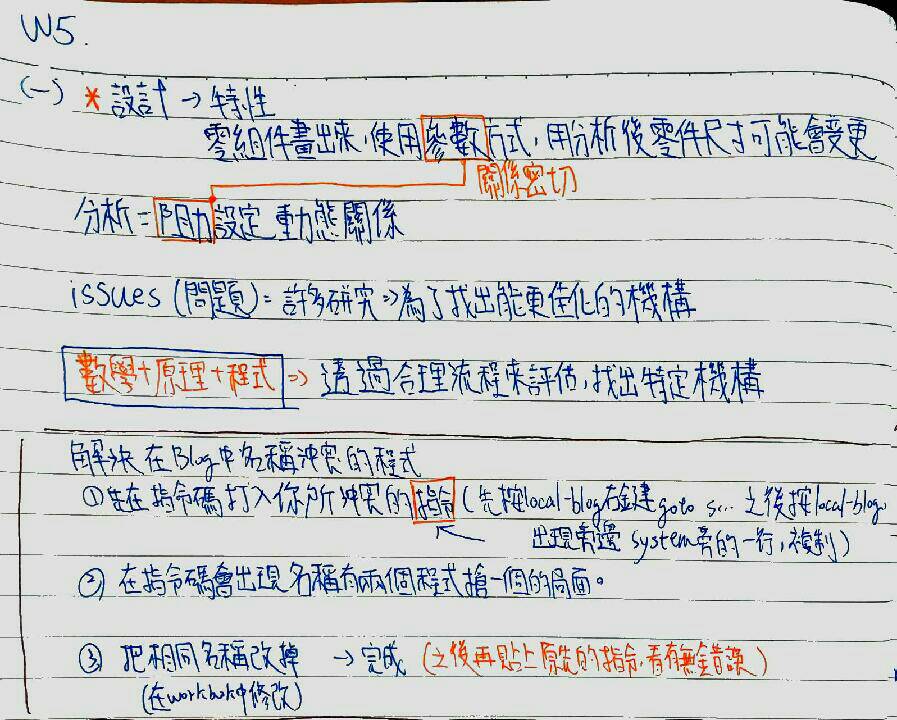 W5.
(一) * 設計 → 特性
零組件畫出來,使用參數方式,用分析後零件尺寸可能會變更
關係密切
分析=阻力設定 動態關係
issues (問題)= 許多研究 => 為了找出能更佳化的機構
數學+原理+程式 => 透過合理流程來評估,找出特定機構
解決在Blog中名稱沖突的程式
① 先在指令碼打入你所沖突的指令 (先按local-blog右鍵 goto s... 之後按local-blog
出現旁邊 system旁的一行,複制)
② 在指令碼會出現名稱有兩個程式搶一個的局面。
③ 把相同名稱改掉 → 完成 (之後再貼上原先的指令,看有無錯誤)
(在workbook中修改)